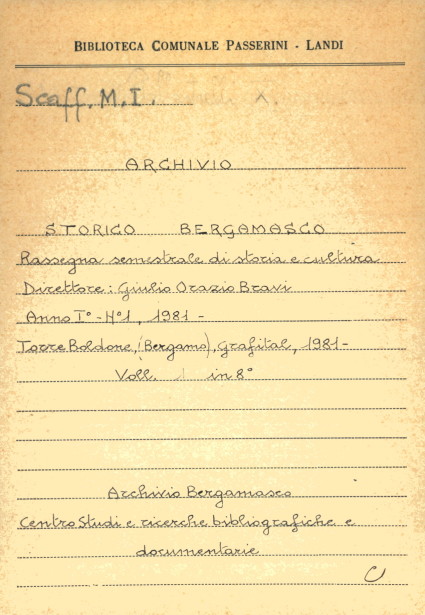 BIBLIOTECA COMUNALE PASSERINI - LANDI
Scaff. M. I.
ARCHIVIO
STORICO BERGAMASCO
Rassegna semestrale di storia e cultura
Direttore: Giulio Orazio Bravi
Anno I° - N° 1, 1981 -
Torre Boldone, (Bergamo), Grafital, 1981 -
Voll. 1 in 8°
Archivio Bergamasco
Centro Studi e ricerche bibliografiche e
documentarie
C